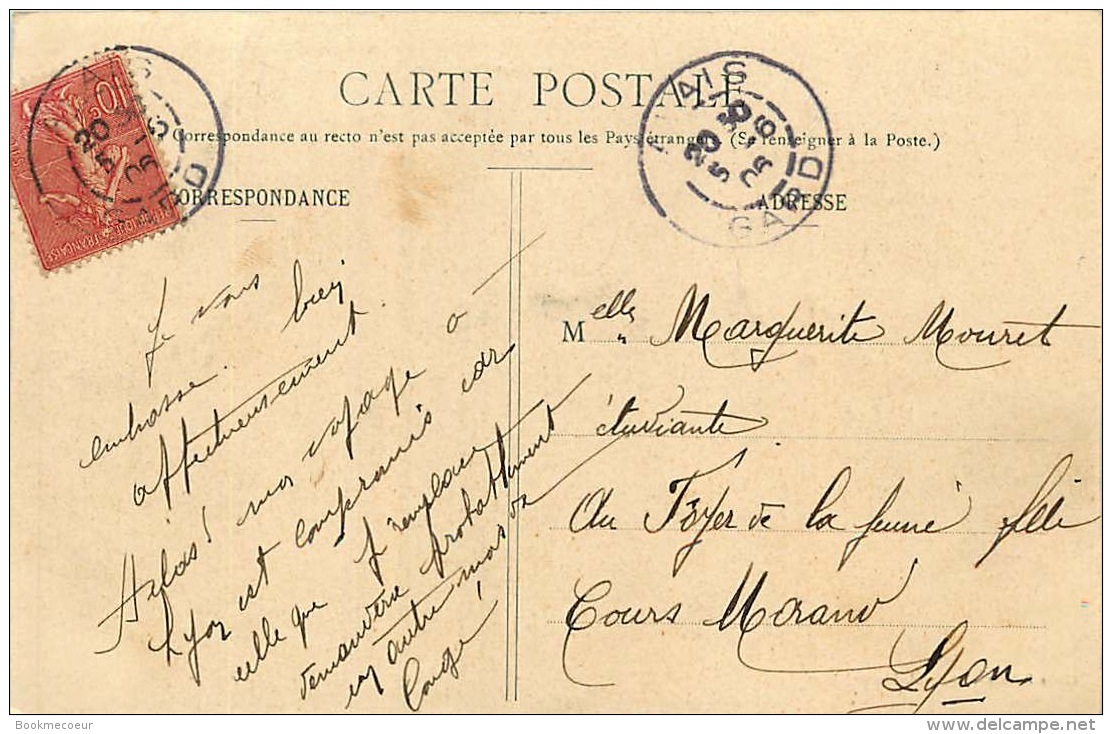 CARTE POSTALE
Correspondance au recto n'est pas acceptée par tous les Pays étrangers (Se renseigner à la Poste.)
CORRESPONDANCE
ADRESSE
10c
REPUBLIQUE FRANÇAISE
ALAIS
20
5
06
GARD
ALAIS
20
5
06
GARD
Je vous
embrasse bien
affectueusement.
Hélas! mon voyage à
Lyon est compromis car
celle que je remplace
demandera probablement
un autre mois de
congé!
Melle Marguerite Mouret
étudiante
Au Foyer de la jeune fille
Cours Morand
Lyon
Bookmecoeur
delcampe.net